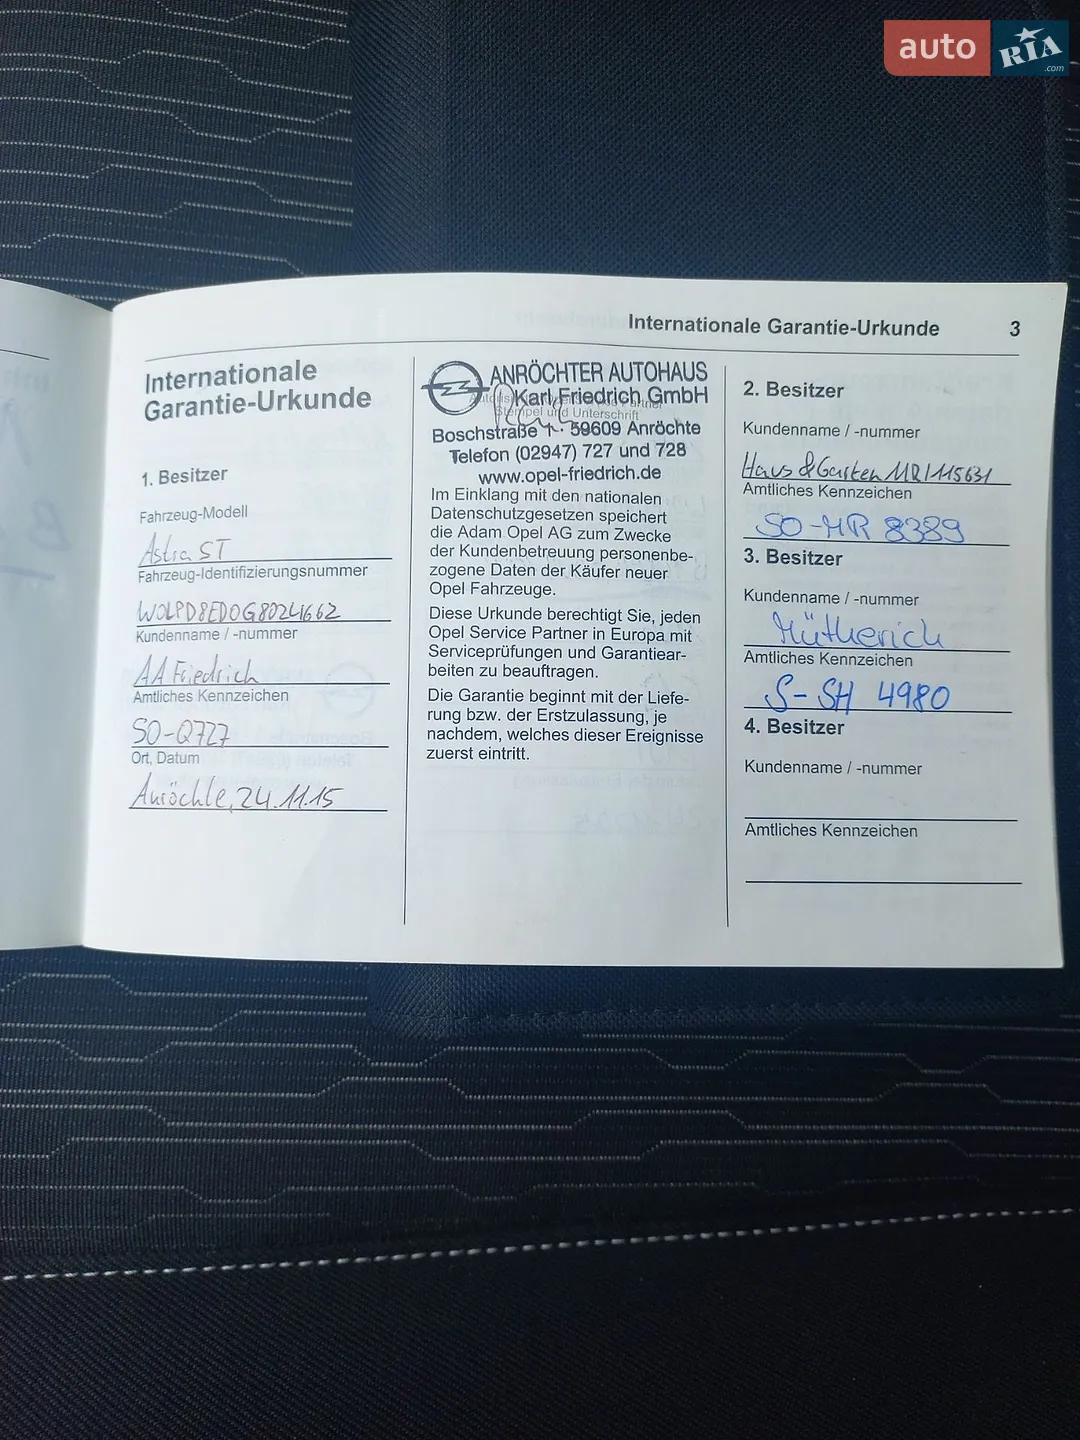 auto RIA.com
Internationale Garantie-Urkunde 3
Internationale
Garantie-Urkunde
1. Besitzer
Fahrzeug-Modell
Astra ST
Fahrzeug-Identifizierungsnummer
W0LPD8ED0G8024662
Kundenname / -nummer
AA Friedrich
Amtliches Kennzeichen
SO-Q727
Ort, Datum
Anröchte, 24.11.15
ANRÖCHTER AUTOHAUS
Karl Friedrich GmbH
Stempel und Unterschrift
Boschstraße 1 · 59609 Anröchte
Telefon (02947) 727 und 728
www.opel-friedrich.de
Im Einklang mit den nationalen
Datenschutzgesetzen speichert
die Adam Opel AG zum Zwecke
der Kundenbetreuung personenbe-
zogene Daten der Käufer neuer
Opel Fahrzeuge.
Diese Urkunde berechtigt Sie, jeden
Opel Service Partner in Europa mit
Serviceprüfungen und Garantiear-
beiten zu beauftragen.
Die Garantie beginnt mit der Liefe-
rung bzw. der Erstzulassung, je
nachdem, welches dieser Ereignisse
zuerst eintritt.
2. Besitzer
Kundenname / -nummer
Haus & Garten MR/115631
Amtliches Kennzeichen
SO-HR 8389
3. Besitzer
Kundenname / -nummer
Mütherich
Amtliches Kennzeichen
S-SH 4980
4. Besitzer
Kundenname / -nummer
Amtliches Kennzeichen